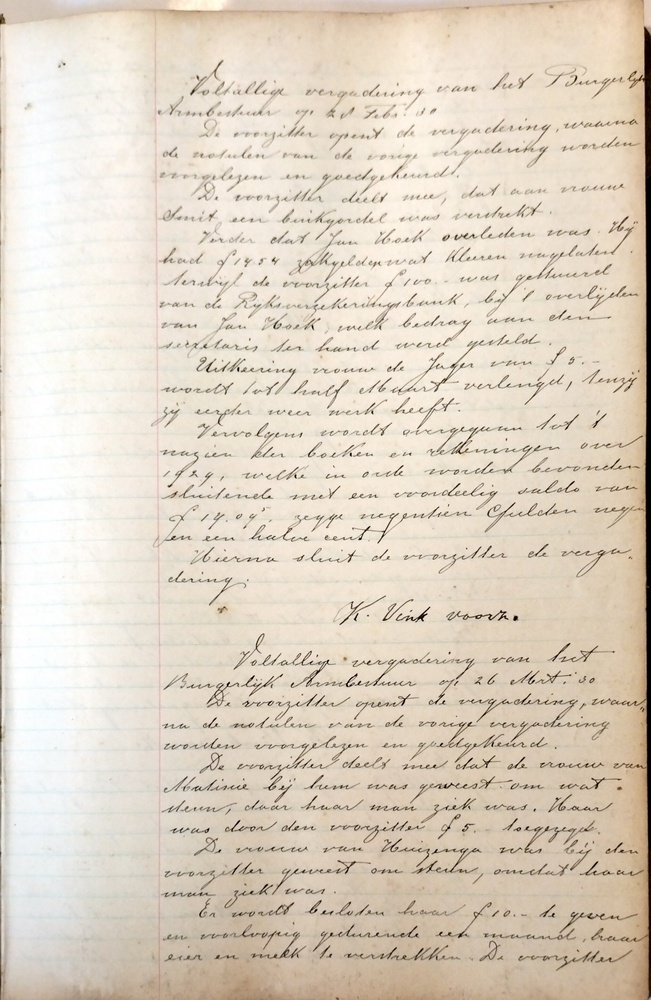 Voltallige vergadering van het Burgerlijk
Armbestuur op 28 Febr. '30
De voorzitter opent de vergadering, waarna
de notulen van de vorige vergadering worden
voorgelezen en goedgekeurd.
De voorzitter deelt mee, dat aan vrouw
Smit een buikgordel was verstrekt.
Verder dat Jan Hoek overleden was. Hij
had f 14.54 zakgeld en wat kleeren nagelaten
terwijl de voorzitter f 100.- was gestuurd
van de Ryksverzekeringsbank, bij 't overlijden
van Jan Hoek, welk bedrag aan den
secretaris ter hand werd gesteld.
Uitkeering vrouw de Jager van f 5.-
wordt tot half Maart verlengd, tenzij
zij eerder weer werk heeft.
Vervolgens wordt overgegaan tot 't
nazien der boeken en rekeningen over
1929, welke in orde worden bevonden
sluitende met een voordeelig saldo van
f 19.09⁵, zegge negentien Gulden negen
en een halve cent.
Hierna sluit de voorzitter de verga-
dering.
K. Vink voorz.
Voltallige vergadering van het
Burgerlijk Armbestuur op 26 Mrt. '30
De voorzitter opent de vergadering, waar-
na de notulen van de vorige vergadering
worden voorgelezen en goedgekeurd.
De voorzitter deelt mee dat de vrouw van
bij hem was geweest om wat
steun, daar haar man ziek was. Haar
was door den voorzitter f 5.- toegezegd.
De vrouw van Huizenga was bij den
voorzitter geweest om steun, omdat haar
man ziek was.
Er wordt besloten haar f 10.- te geven
en voorloopig gedurende een maand, haar
eier en melk te verstrekken. De voorzitter